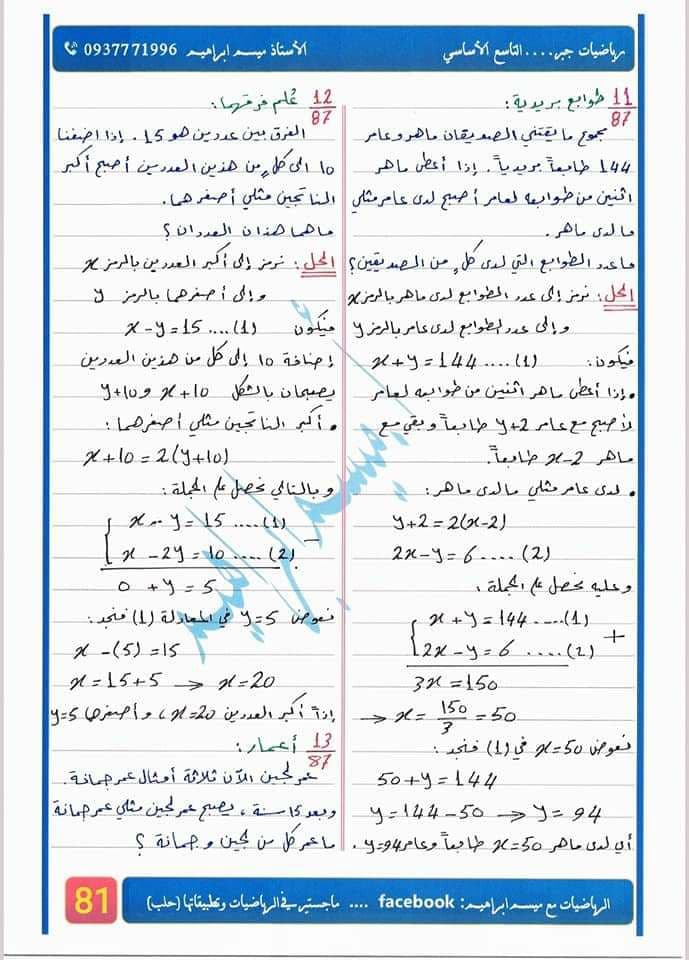 رياضيات جبر.....التاسع الأساسي
الأستاذ ميسم ابراهيم 0937771996
11/87 طوابع بريدية:
مجموع ما يقتني الصديقان ماهر وعامر
144 طابعاً بريدياً. إذا أعطى ماهر
اثنين من طوابعه لعامر أصبح لدى عامر مثلي
ما لدى ماهر.
ما عدد الطوابع التي لدى كلٍ من الصديقين؟
الحل: نرمز إلى عدد الطوابع لدى ماهر بالرمز x
وإلى عدد الطوابع لدى عامر بالرمز y
فيكون: x+y=144 ....(1)
• إذا أعطى ماهر اثنين من طوابعه لعامر
لأصبح مع عامر y+2 طابعاً وبقي مع
ماهر x-2 طابعاً.
• لدى عامر مثلي ما لدى ماهر:
y+2=2(x-2)
2x-y=6 ....(2)
وعليه نحصل على الجملة:
x+y=144 ....(1)
2x-y=6 ....(2)
+
3x=150
→ x=150/3=50
نعوض x=50 في (1) فنجد:
50+y=144
y=144-50 → y=94
أي لدى ماهر x=50 طابعاً وعامر y=94.
12/87 عُلم فرقهما:
الفرق بين عددين هو 15. إذا اضفنا
10 الى كلٍ من هذين العددين أصبح أكبر
الناتجين مثلي أصغرهما.
ما هما هذان العددان؟
الحل: نرمز إلى أكبر العددين بالرمز x
وإلى أصغرهما بالرمز y
فيكون x-y=15 ....(1)
إضافة 10 إلى كل من هذين العددين
يصبحان بالشكل x+10 و y+10
• أكبر الناتجين مثلي أصغرهما:
x+10=2(y+10)
وبالتالي نحصل على الجملة:
x-y=15 ....(1)
x-2y=10 ....(2)
-
0+y=5
نعوض y=5 في المعادلة (1) فنجد:
x-(5)=15
x=15+5 → x=20
إذاً أكبر العددين x=20، وأصغرهما y=5
13/87 أعمار:
عمر لجين الآن ثلاثة أمثال عمر جمانة.
وبعد 15 سنة، يصبح عمر لجين مثلي عمر جمانة
ما عمر كل من لجين وجمانة؟
ميسم ابراهيم
الرياضيات مع ميسم ابراهيم: facebook .... ماجستير في الرياضيات وتطبيقاتها (حلب)
81